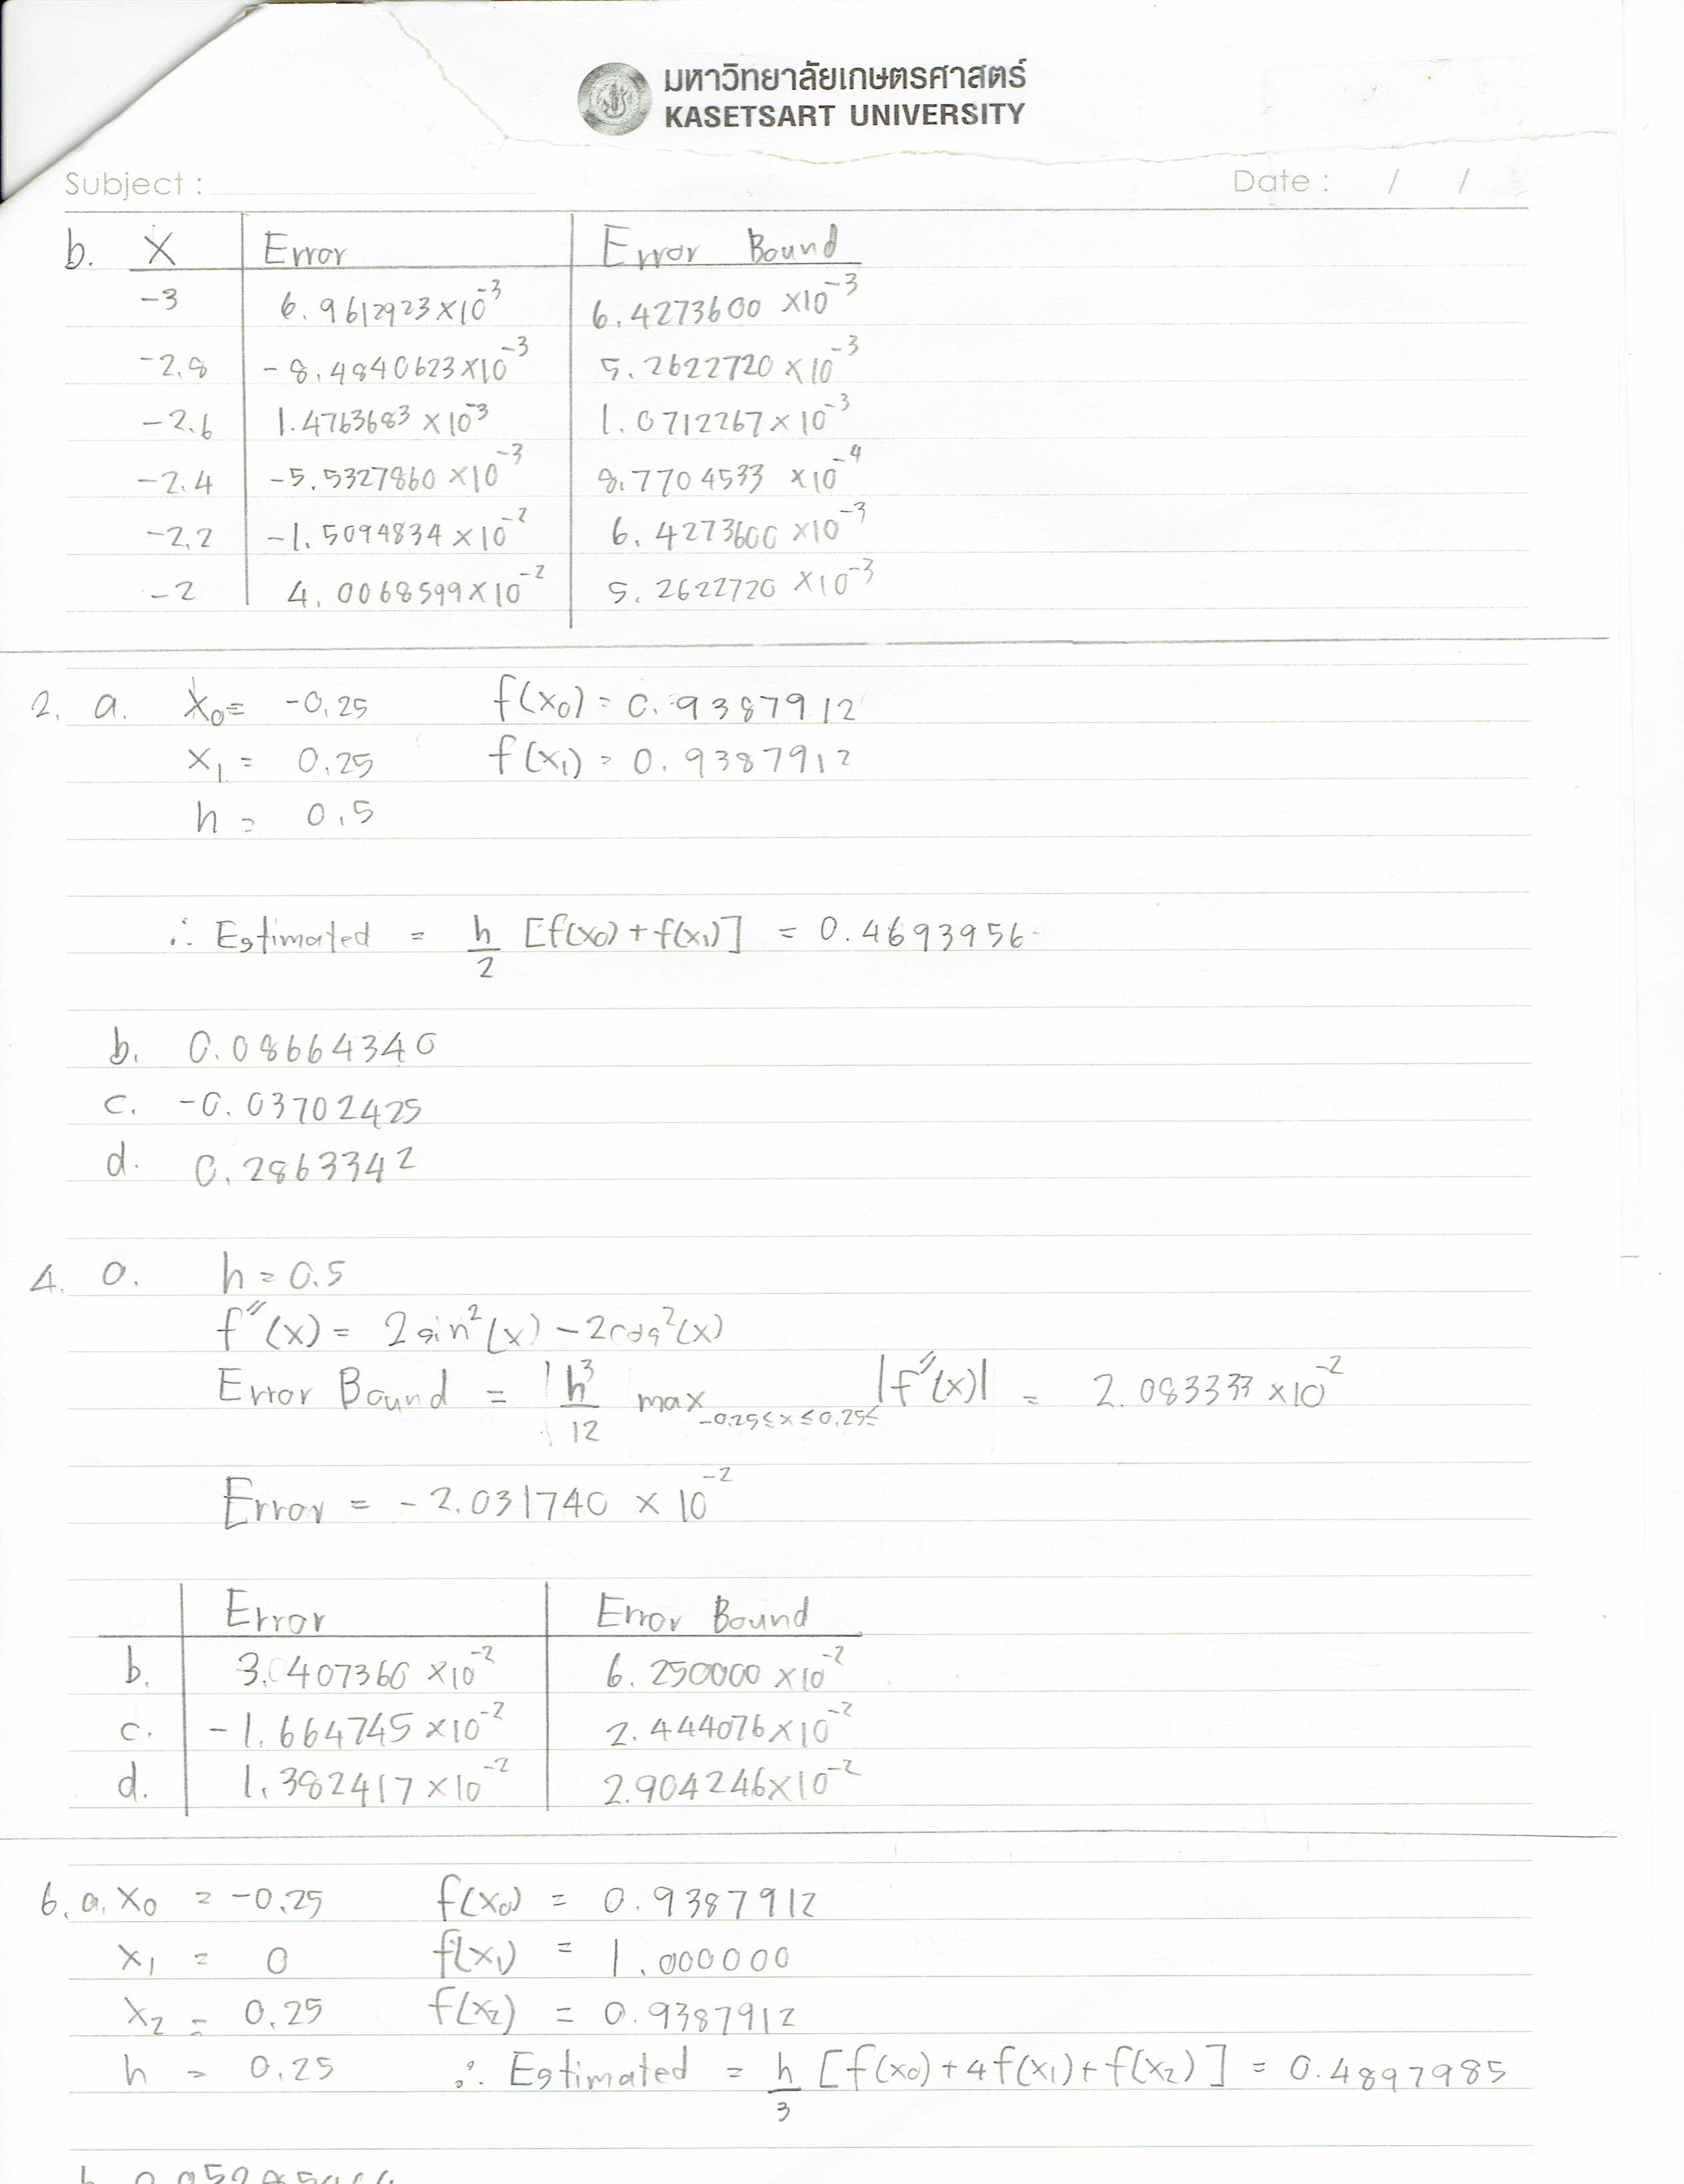 มหาวิทยาลัยเกษตรศาสตร์
KASETSART UNIVERSITY
Subject : Date : / /
b. X Error Error Bound
-3 6.9612923×10⁻³ 6.4273600 ×10⁻³
-2.8 -8.4840623×10⁻³ 5.2622720 ×10⁻³
-2.6 1.4763683 ×10⁻³ 1.0712267×10⁻³
-2.4 -5.5327860 ×10⁻³ 8.7704533 ×10⁻⁴
-2.2 -1.5094834 ×10⁻² 6.4273600 ×10⁻³
-2 4.0068599×10⁻² 5.2622720 ×10⁻³
2. a. x₀ = -0.25 f(x₀) = 0.9387912
x₁ = 0.25 f(x₁) = 0.9387912
h = 0.5
∴ Estimated = h/2 [f(x₀) + f(x₁)] = 0.4693956
b. 0.08664340
c. -0.03702425
d. 0.2863342
4. a. h = 0.5
f″(x) = 2sin²(x) - 2cos²(x)
Error Bound = |h³/12 max -0.25≤x≤0.25≤ |f″(x)| = 2.083333 ×10⁻²
Error = -2.031740 × 10⁻²
Error Error Bound
b. 3.0407360 ×10⁻² 6.250000 ×10⁻²
c. -1.664745 ×10⁻² 2.444076×10⁻²
d. 1.382417 ×10⁻² 2.904246×10⁻²
6. a. x₀ = -0.25 f(x₀) = 0.9387912
x₁ = 0 f(x₁) = 1.000000
x₂ = 0.25 f(x₂) = 0.9387912
h = 0.25 ∴ Estimated = h/3 [f(x₀) + 4f(x₁) + f(x₂)] = 0.4897985